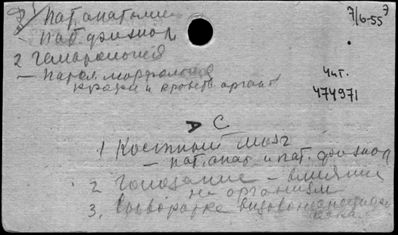 пат. анатомия
7/6-55
— пат. физиол
2 Гематология
— патол. морфология
крови и кроветв. орган
Чит.
474971
A C
1 Костный мозг
— пат. анат. и пат. физиол
2 Голодание — влияние
на организм
3. Сыворотка